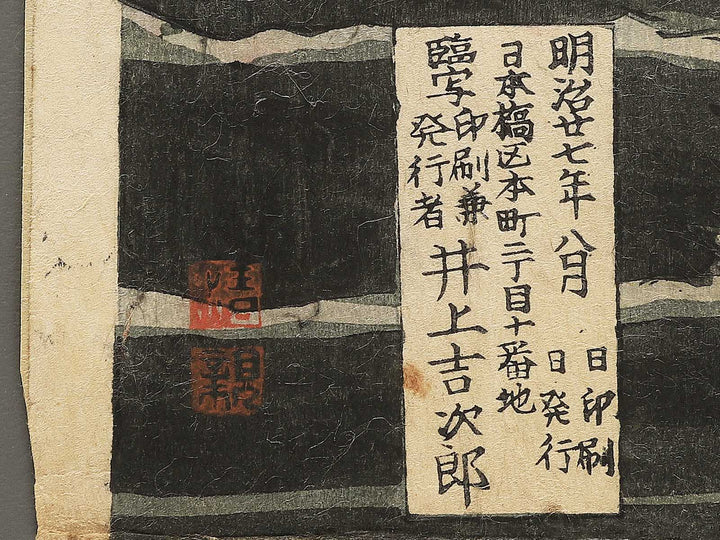 明治廿七年八月 日印刷
日発行
日本橋区本町二丁目十番地
臨写印刷兼
発行者 井上吉次郎